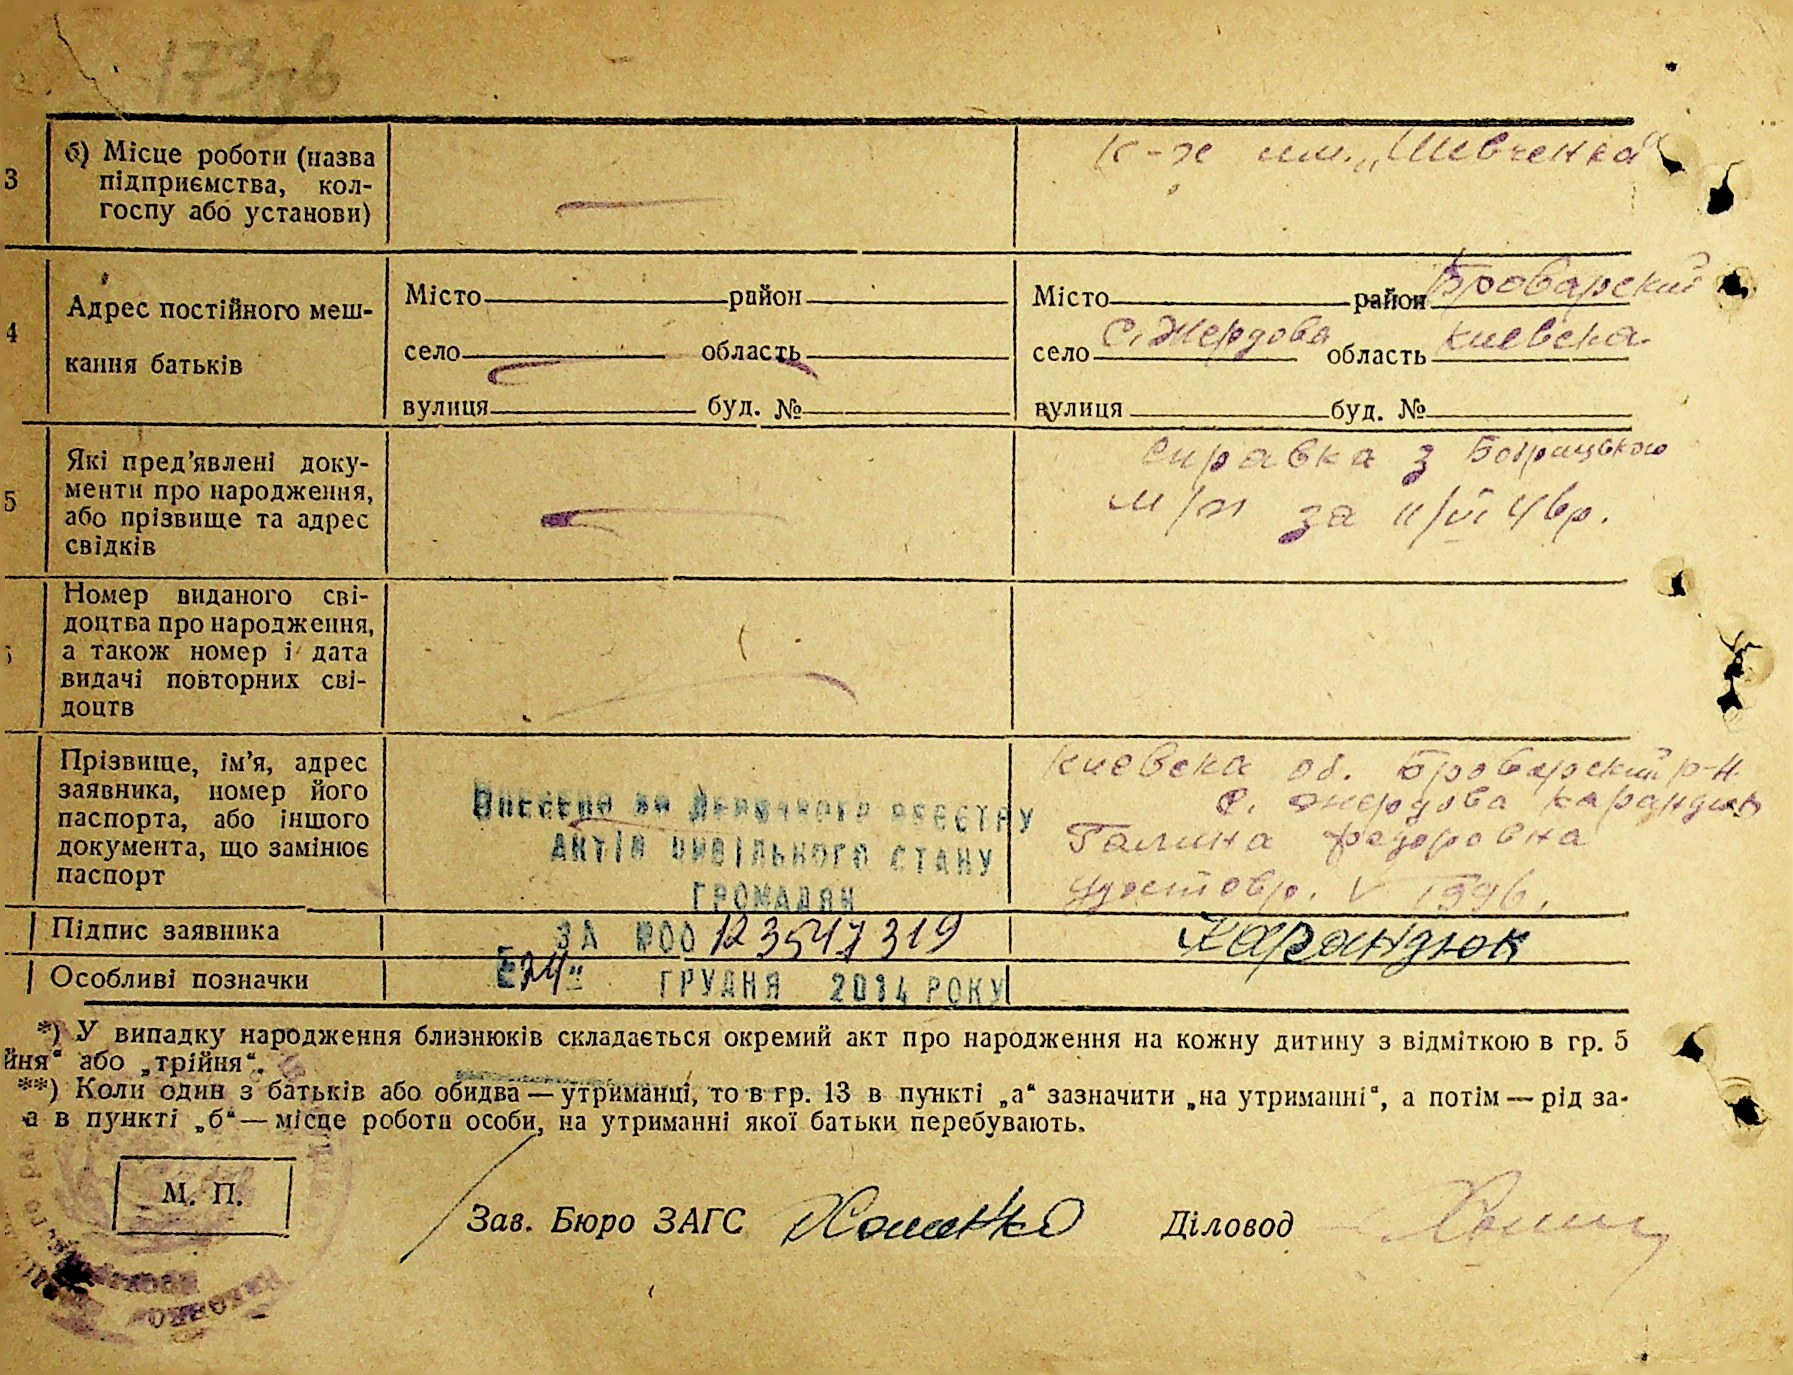 3
б) Місце роботи (назва
підприємства, кол-
госпу або установи)
к-п им. „Шевченка"
4
Адрес постійного меш-
кання батьків
Місто район
село область
вулиця буд. №
Місто район Броварский
село с. Жердова область киевска
вулиця буд. №
5
Які пред'явлені доку-
менти про народження,
або прізвище та адрес
свідків
справка з
за 11/VI 46р.
Номер виданого сві-
доцтва про народження,
а також номер і дата
видачі повторних сві-
доцтв
Прізвище, ім'я, адрес
заявника, номер його
паспорта, або іншого
документа, що замінює
паспорт
Внесено до Державного реєстру
актів цивільного стану
громадян
киевска об. Броварский р-н.
с. Жердова Карандюк
Галина Федоровна
Підпис заявника
ЗА №00 123547319
Карандюк
Особливі позначки
"24" ГРУДНЯ 2014 РОКУ
*) У випадку народження близнюків складається окремий акт про народження на кожну дитину з відміткою в гр. 5
йня" або „трійня".
**) Коли один з батьків або обидва — утриманці, то в гр. 13 в пункті „а" зазначити „на утриманні", а потім — рід за-
а в пункті „б" — місце роботи особи, на утриманні якої батьки перебувають.
М. П.
Зав. Бюро ЗАГС
Діловод